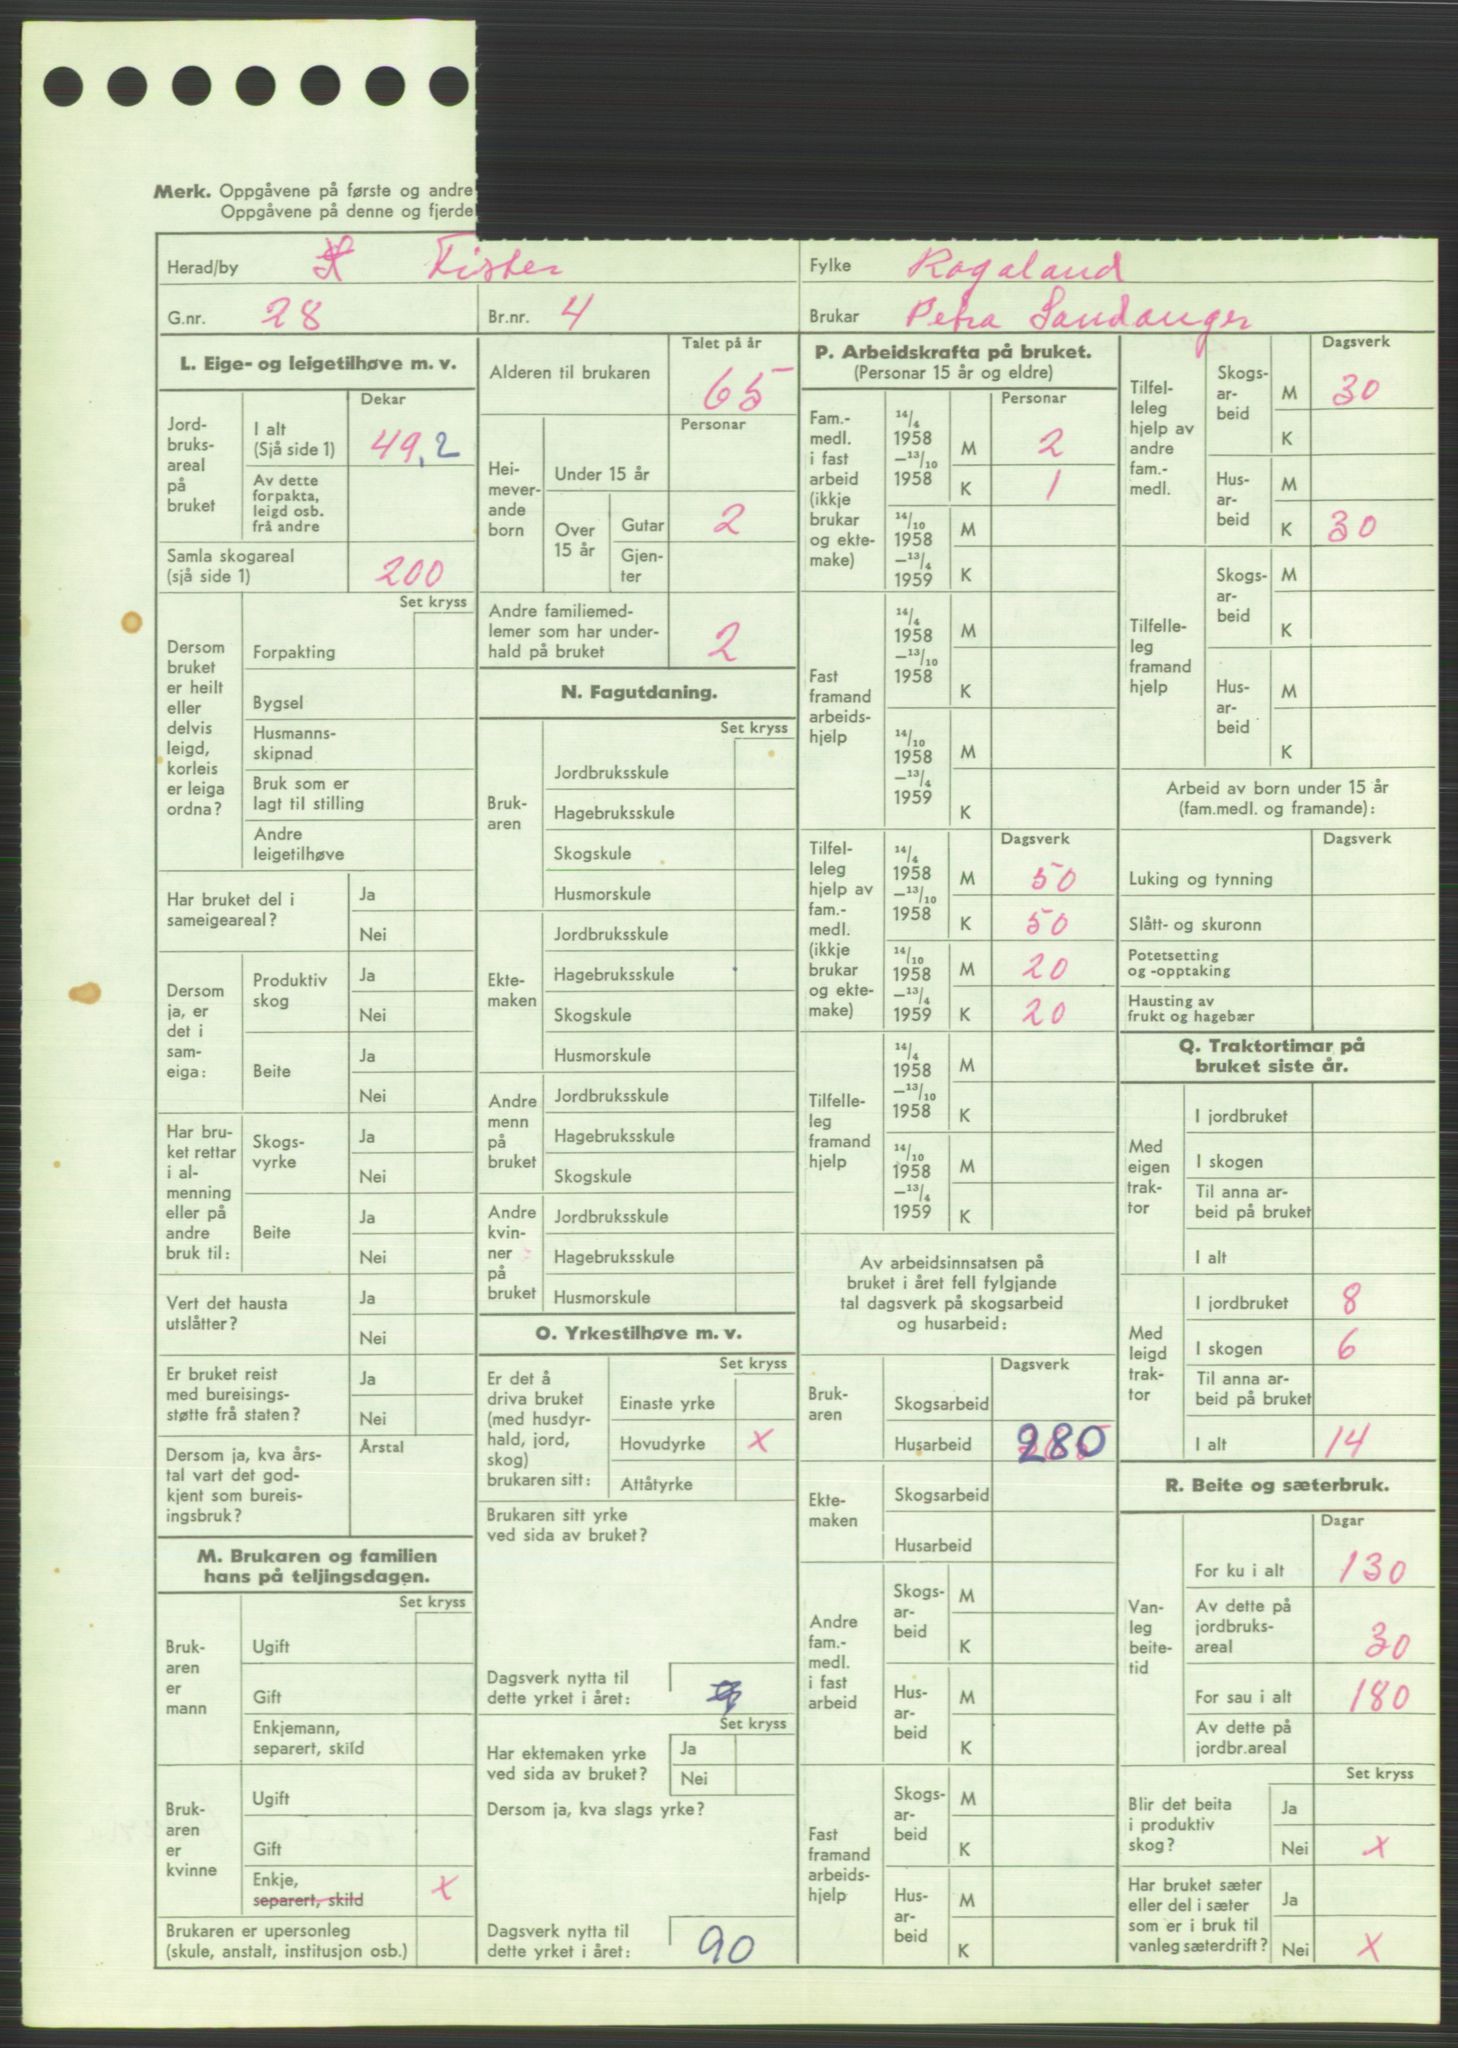 Merk. Oppgåvene på første og andre
Oppgåvene på denne og fjerde
Herad/by Fister
Fylke Rogaland
G.nr. 28
Br.nr. 4
Brukar Petra Sandanger
L. Eige- og leigetilhøve m. v.
Dekar
Jord-
bruks-
areal
på
bruket
I alt
(Sjå side 1) 49,2
Av dette
forpakta,
leigd osb.
frå andre
Samla skogareal
(sjå side 1) 200
Set kryss
Dersom
bruket
er heilt
eller
delvis
leigd,
korleis
er leiga
ordna?
Forpakting
Bygsel
Husmanns-
skipnad
Bruk som er
lagt til stilling
Andre
leigetilhøve
Har bruket del i
sameigeareal?
Ja
Nei
Dersom
ja, er
det i
sam-
eiga:
Produktiv
skog
Ja
Nei
Beite
Ja
Nei
Har bru-
ket rettar
i al-
menning
eller på
andre
bruk til:
Skogs-
vyrke
Ja
Nei
Beite
Ja
Nei
Vert det hausta
utslåtter?
Ja
Nei
Er bruket reist
med bureisings-
støtte frå staten?
Ja
Nei
Dersom ja, kva års-
tal vart det god-
kjent som bureis-
ingsbruk?
Årstal
M. Brukaren og familien
hans på teljingsdagen.
Set kryss
Bruk-
aren
er
mann
Ugift
Gift
Enkjemann,
separert, skild
Bruk-
aren
er
kvinne
Ugift
Gift
Enkje,
separert, skild x
Brukaren er upersonleg
(skule, anstalt, institusjon osb.)
Talet på år
Alderen til brukaren 65
Personar
Hei-
mever-
ande
born
Under 15 år
Over
15 år
Gutar 2
Gjen-
ter
Andre familiemed-
lemer som har under-
hald på bruket 2
N. Fagutdaning.
Set kryss
Bruk-
aren
Jordbruksskule
Hagebruksskule
Skogskule
Husmorskule
Ekte-
maken
Jordbruksskule
Hagebruksskule
Skogskule
Husmorskule
Andre
menn
på
bruket
Jordbruksskule
Hagebruksskule
Skogskule
Andre
kvin-
ner
på
bruket
Jordbruksskule
Hagebruksskule
Husmorskule
O. Yrkestilhøve m. v.
Set kryss
Er det å
driva bruket
(med husdyr-
hald, jord,
skog)
brukaren sitt:
Einaste yrke
Hovudyrke x
Attåtyrke
Brukaren sitt yrke
ved sida av bruket?
Dagsverk nytta til
dette yrket i året:
Set kryss
Har ektemaken yrke
ved sida av bruket?
Ja
Nei
Dersom ja, kva slags yrke?
Dagsverk nytta til
dette yrket i året: 90
P. Arbeidskrafta på bruket.
(Personar 15 år og eldre)
Personar
Fam.-
medl.
i fast
arbeid
(ikkje
brukar
og ekte-
make)
14/4
1958
—13/10
1958
M 2
K 1
14/10
1958
—13/4
1959
M
K
Fast
framand
arbeids-
hjelp
14/4
1958
—13/10
1958
M
K
14/10
1958
—13/4
1959
M
K
Dagsverk
Tilfel-
leleg
hjelp av
fam.-
medl.
(ikkje
brukar
og ekte-
make)
14/4
1958
—13/10
1958
M 50
K 50
14/10
1958
—13/4
1959
M 20
K 20
Tilfelle-
leg
framand
hjelp
14/4
1958
—13/10
1958
M
K
14/10
1958
—13/4
1959
M
K
Av arbeidsinnsatsen på
bruket i året fell fylgjande
tal dagsverk på skogsarbeid
og husarbeid:
Dagsverk
Bruk-
aren
Skogsarbeid
Husarbeid 280
Ekte-
maken
Skogsarbeid
Husarbeid
Andre
fam.-
medl.
i fast
arbeid
Skogs-
ar-
beid
M
K
Hus-
ar-
beid
M
K
Fast
framand
arbeids-
hjelp
Skogs-
ar-
beid
M
K
Hus-
ar-
beid
M
K
Dagsverk
Tilfel-
leleg
hjelp av
andre
fam.-
medl.
Skogs-
ar-
beid
M 30
K
Hus-
ar-
beid
M
K 30
Tilfelle-
leg
framand
hjelp
Skogs-
ar-
beid
M
K
Hus-
ar-
beid
M
K
Arbeid av born under 15 år
(fam.medl. og framande):
Dagsverk
Luking og tynning
Slått- og skuronn
Potetsetting
og -opptaking
Hausting av
frukt og hagebær
Q. Traktortimar på
bruket siste år.
Med
eigen
trak-
tor
I jordbruket
I skogen
Til anna ar-
beid på bruket
I alt
Med
leigd
trak-
tor
I jordbruket 8
I skogen 6
Til anna ar-
beid på bruket
I alt 14
R. Beite og sæterbruk.
Dagar
Van-
leg
beite-
tid
For ku i alt 130
Av dette på
jordbruks-
areal 30
For sau i alt 180
Av dette på
jordbr.areal
Set kryss
Blir det beita
i produktiv
skog?
Ja
Nei x
Har bruket sæter
eller del i sæter
som er i bruk til
vanleg sæterdrift?
Ja
Nei x